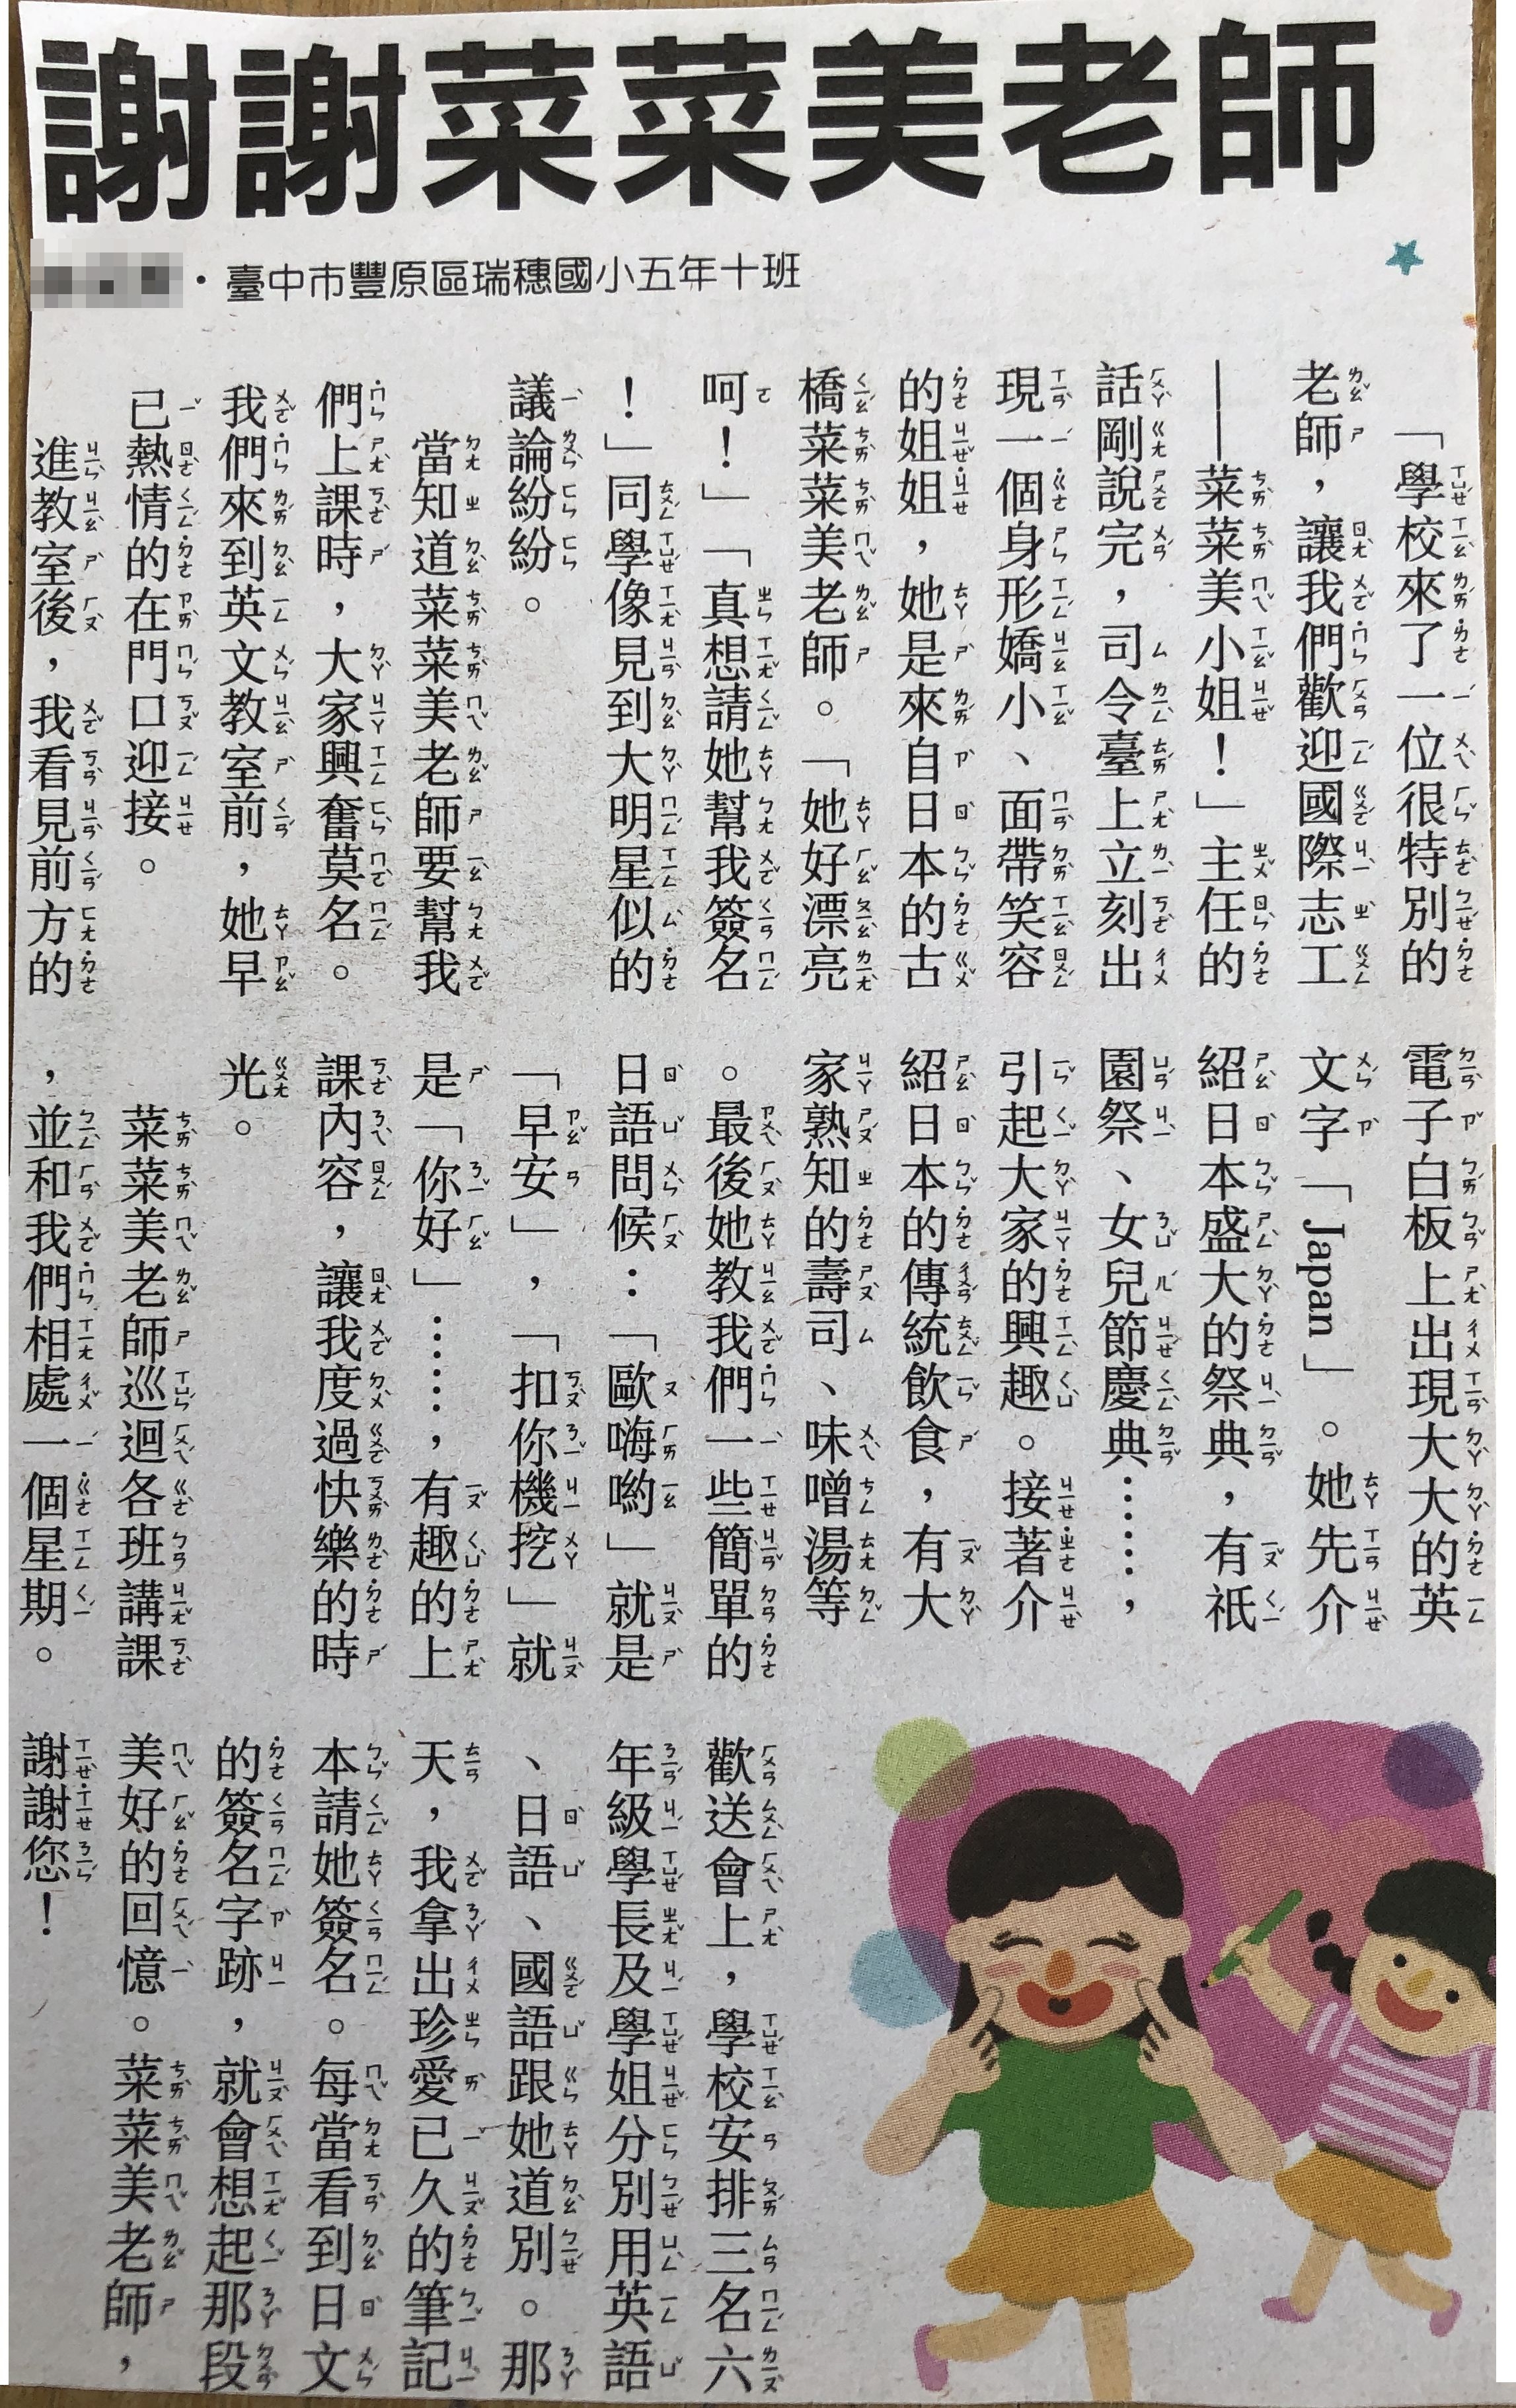 謝謝菜菜美老師
・臺中市豐原區瑞穗國小五年十班
「學校來了一位很特別的
老師，讓我們歡迎國際志工
——菜菜美小姐！」主任的
話剛說完，司令臺上立刻出
現一個身形嬌小、面帶笑容
的姐姐，她是來自日本的古
橋菜菜美老師。「她好漂亮
呵！」「真想請她幫我簽名
！」同學像見到大明星似的
議論紛紛。
當知道菜菜美老師要幫我
們上課時，大家興奮莫名。
我們來到英文教室前，她早
已熱情的在門口迎接。
進教室後，我看見前方的
電子白板上出現大大的英
文字「Japan」。她先介
紹日本盛大的祭典，有祇
園祭、女兒節慶典……，
引起大家的興趣。接著介
紹日本的傳統飲食，有大
家熟知的壽司、味噌湯等
。最後她教我們一些簡單的
日語問候：「歐嗨喲」就是
「早安」，「扣你機挖」就
是「你好」……，有趣的上
課內容，讓我度過快樂的時
光。
菜菜美老師巡迴各班講課
，並和我們相處一個星期。
歡送會上，學校安排三名六
年級學長及學姐分別用英語
、日語、國語跟她道別。那
天，我拿出珍愛已久的筆記
本請她簽名。每當看到日文
的簽名字跡，就會想起那段
美好的回憶。菜菜美老師，
謝謝您！